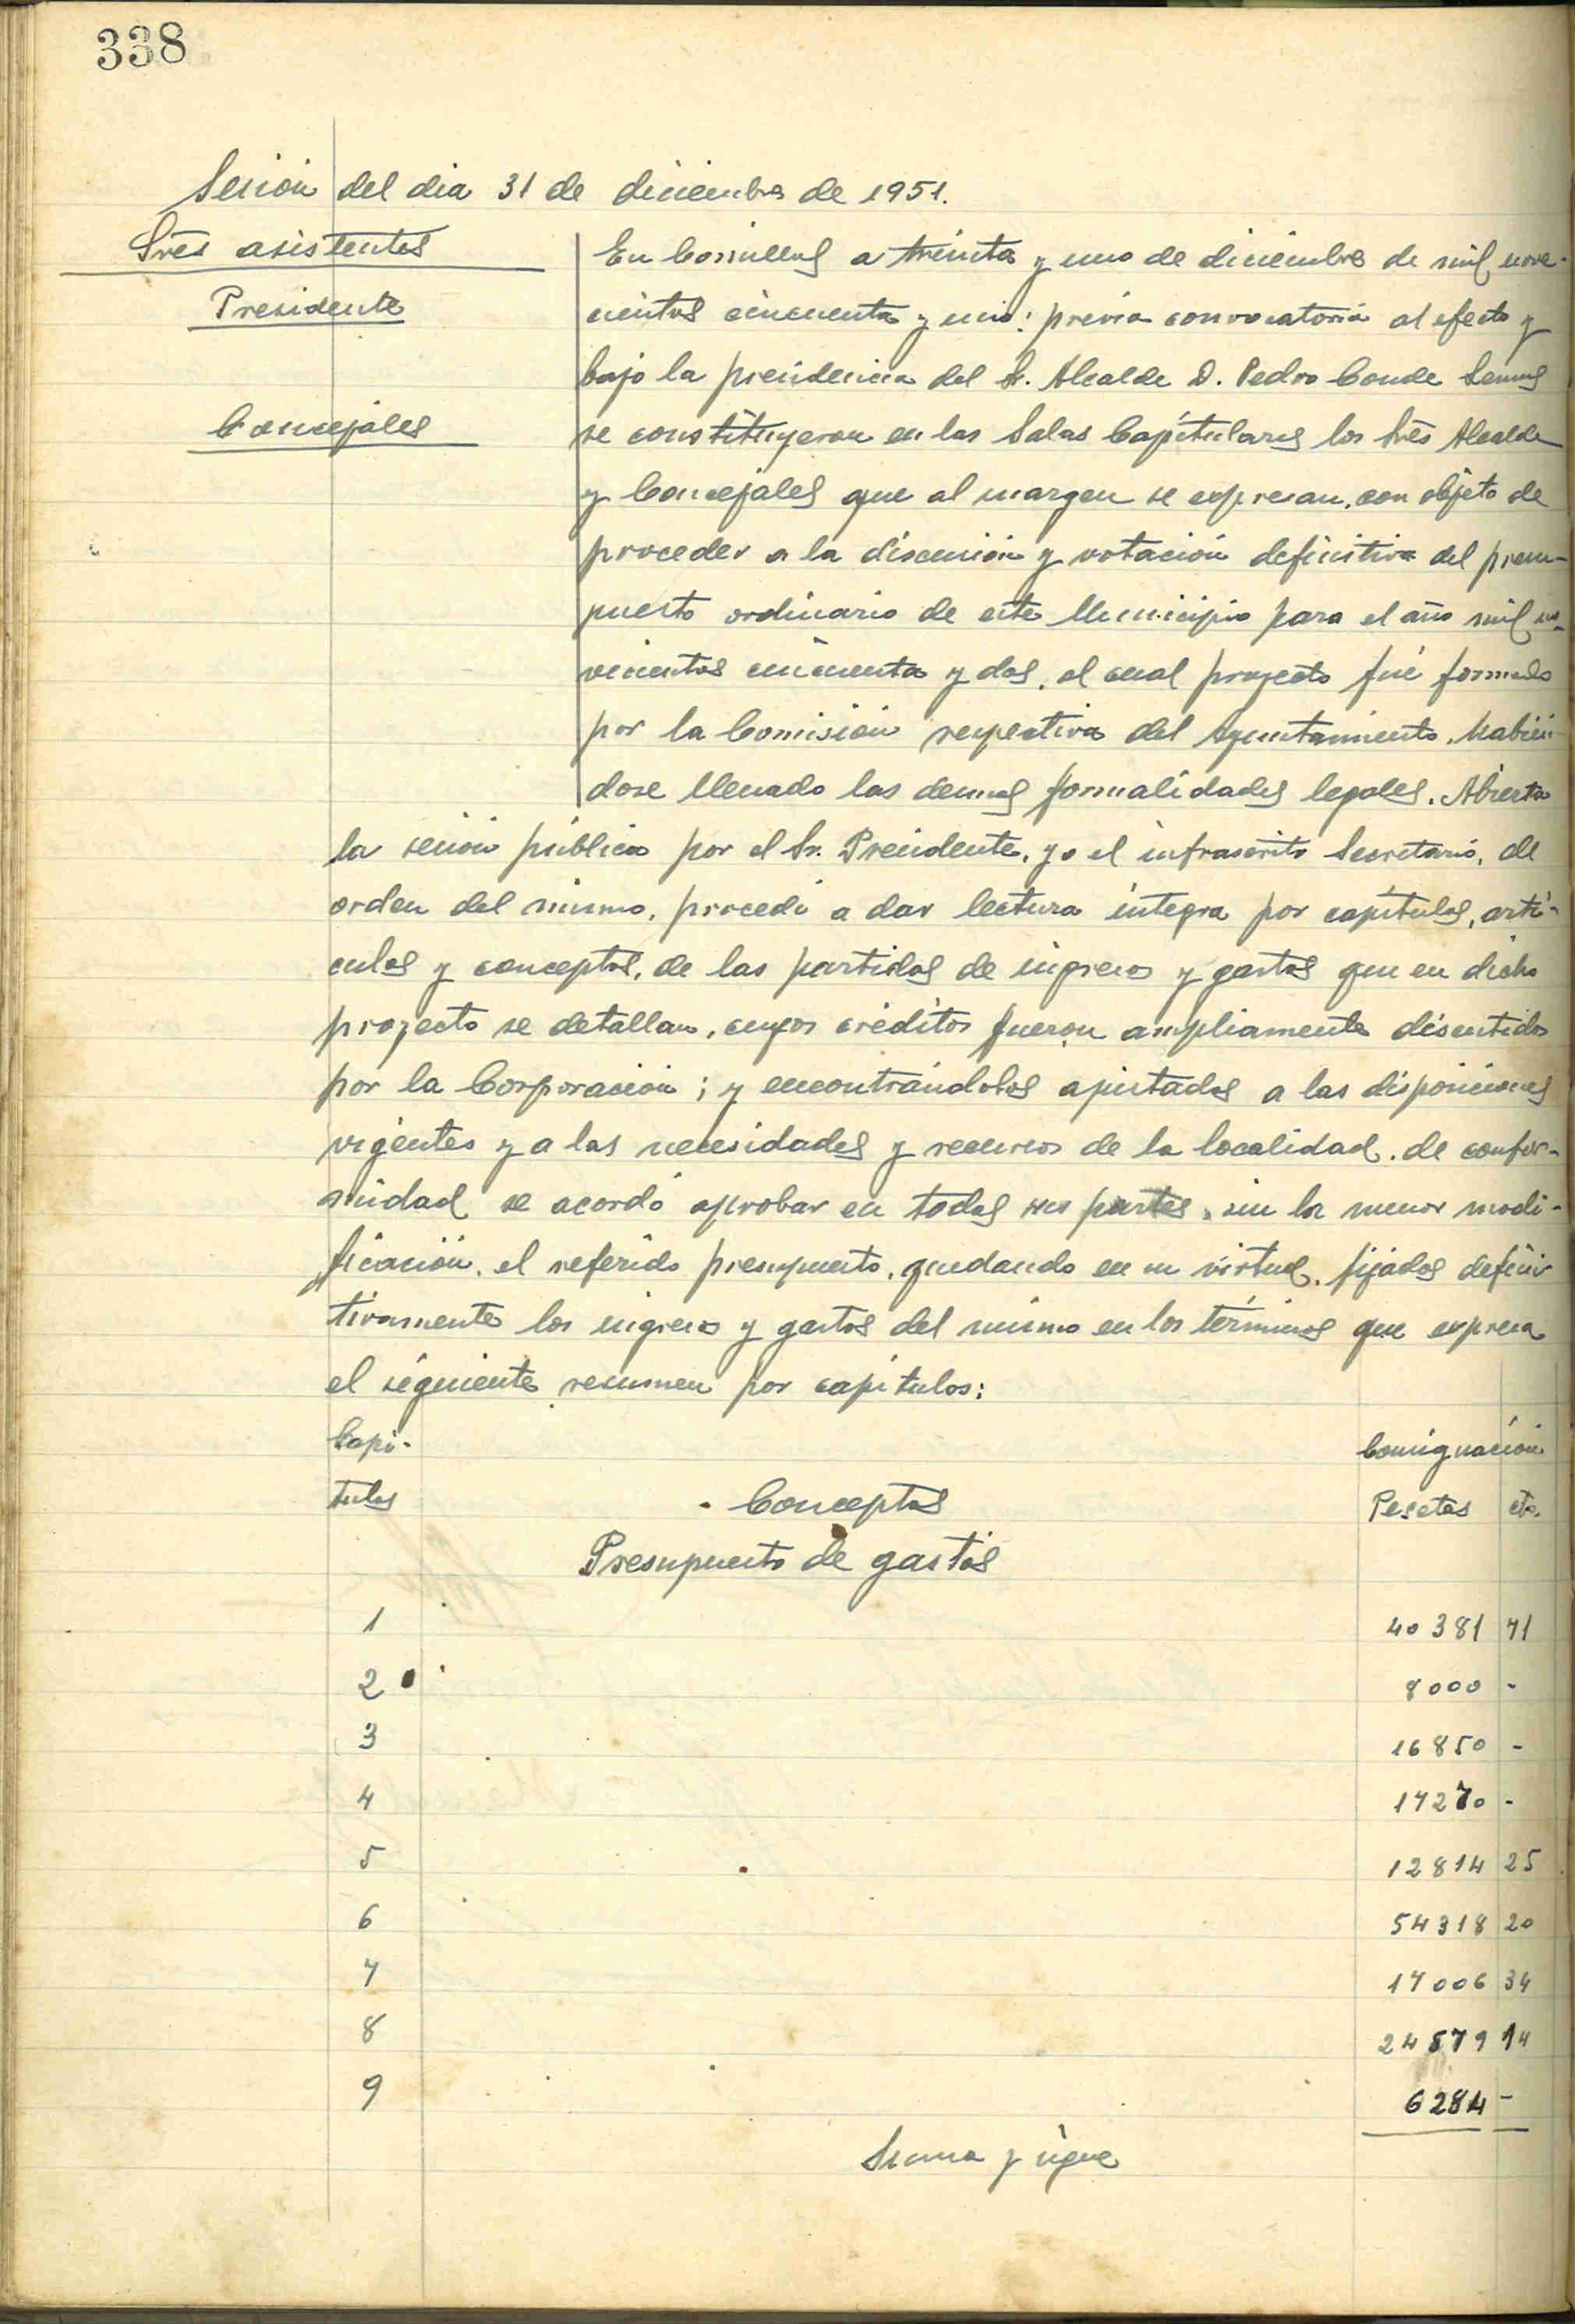 338
Sesión del dia 31 de diciembre de 1951.
Sres asistentes
Presidente
Concejales
En Cornellá a treinta y uno de diciembre de mil nove-
cientos cincuenta y uno: previa convocatoria al efecto y
bajo la presidencia del Sr. Alcalde D. Pedro Conde
se constituyeron en las Salas Capitulares los Sres Alcalde
y Concejales que al margen se expresan, con objeto de
proceder a la discusión y votación definitiva del presu-
puesto ordinario de este Municipio para el año mil no-
vecientos cincuenta y dos, el cual proyecto fué formado
por la Comisión respectiva del Ayuntamiento, habién-
dose llenado las demas formalidades legales. Abierta
la sesión pública por el Sr. Presidente, yo el infrascrito Secretario, de
orden del mismo, procedí a dar lectura íntegra por capítulos, artí-
culos y conceptos, de las partidas de ingresos y gastos que en dicho
proyecto se detallan, cuyos créditos fueron ampliamente discutidos
por la Corporación; y encontrándolos ajustados a las disposiciones
vigentes y a las necesidades y recursos de la localidad, de confor-
midad se acordó aprobar en todas sus partes, sin la menor modi-
ficación, el referido presupuesto, quedando en su virtud, fijados defini-
tivamente los ingresos y gastos del mismo en los términos que expresa
el siguiente resumen por capítulos:
Capi- Consignación
tulos Conceptos Pesetas cts.
Presupuesto de gastos
1 40381 71
2 8000 -
3 16850 -
4 17270 -
5 12814 25
6 54318 20
7 17006 34
8 24579 14
9 6284 -
Suma y sigue